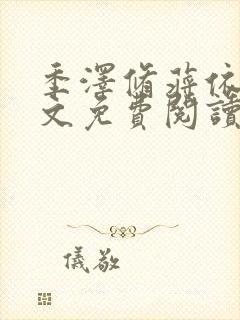 季澤脩蔣依
文免費閱讀
儀敬